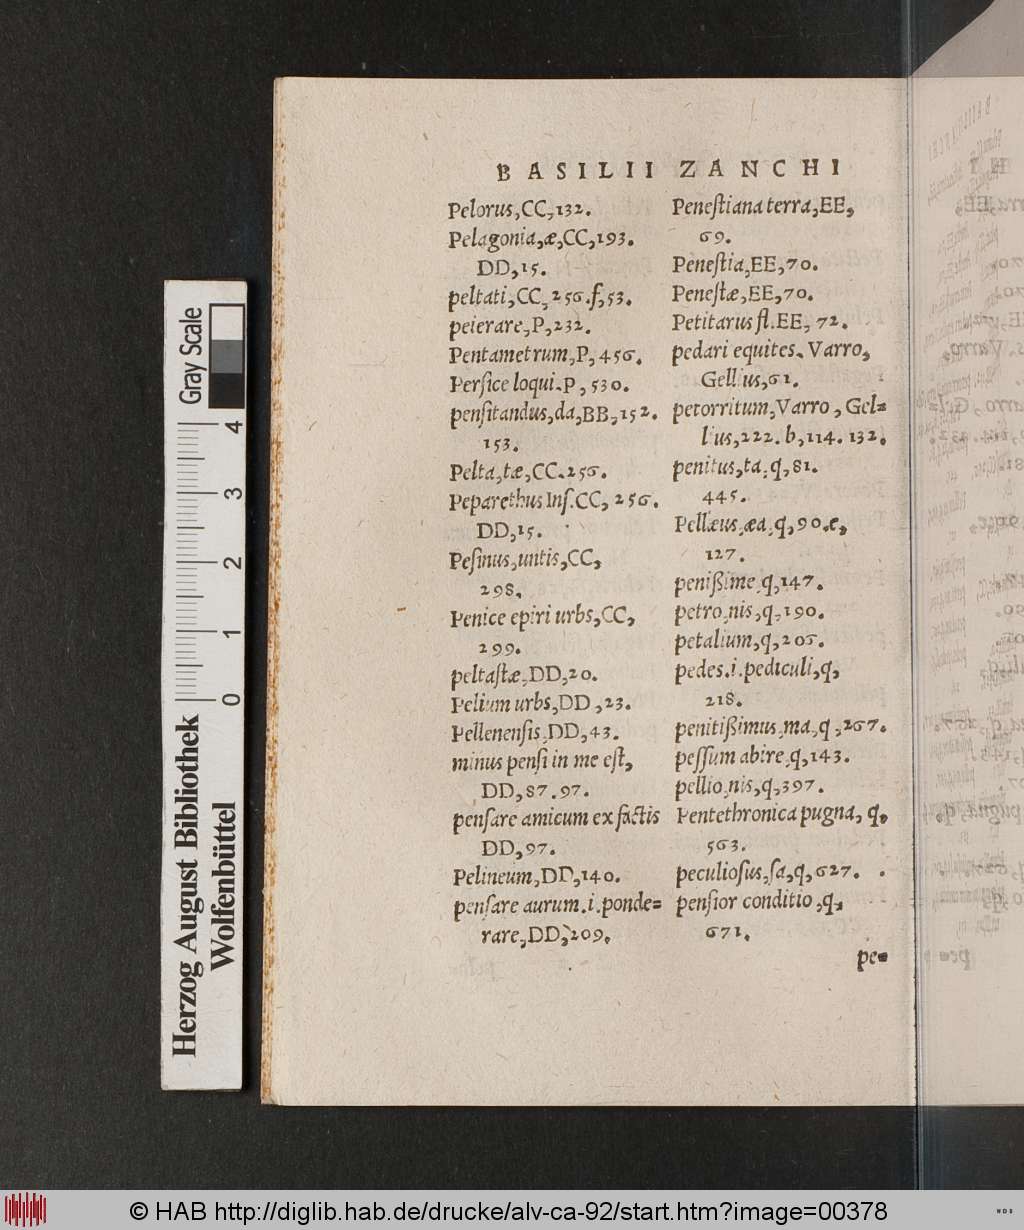 BASILII ZANCHI
Pelorus, CC, 132.
Pelagonia, æ, CC, 193.
DD, 15.
peltati, CC, 256. f, 53.
peierare, P, 232.
Pentametrum, P, 456.
Persice loqui. P, 530.
pensitandus, da, BB, 152.
153.
Pelta, tæ, CC. 256.
Peparethus Inſ. CC, 256.
DD, 15.
Peſinus, untis, CC,
298.
Penice epiri urbs, CC,
299.
peltaſtæ, DD, 20.
Pelium urbs, DD, 23.
Pellenenſis, DD, 43.
minus penſi in me eſt,
DD, 87. 97.
penſare amicum ex factis
DD, 97.
Pelineum, DD, 140.
penſare aurum. i. ponde=
rare, DD, 209.
Peneſtiana terra, EE,
69.
Peneſtia, EE, 70.
Peneſtæ, EE, 70.
Petitarus fl. EE, 72.
pedari equites. Varro,
Gellius, 61.
petorritum, Varro, Gel=
lius, 222. b, 114. 132.
penitus, ta, q, 81.
445.
Pellæus, æa, q, 90. e,
127.
penißime, q, 147.
petro, nis, q, 190.
petalium, q, 206.
pedes. i. pediculi, q,
218.
penitißimus, ma, q, 267.
peſſum abire, q, 143.
pellio, nis, q, 397.
Pentethronica pugna, q,
563.
peculioſus, ſa, q, 627.
penſior conditio, q,
671.
pe=
Gray Scale
4
3
2
1
0
Herzog August Bibliothek
Wolfenbüttel
© HAB http://diglib.hab.de/drucke/alv-ca-92/start.htm?image=00378